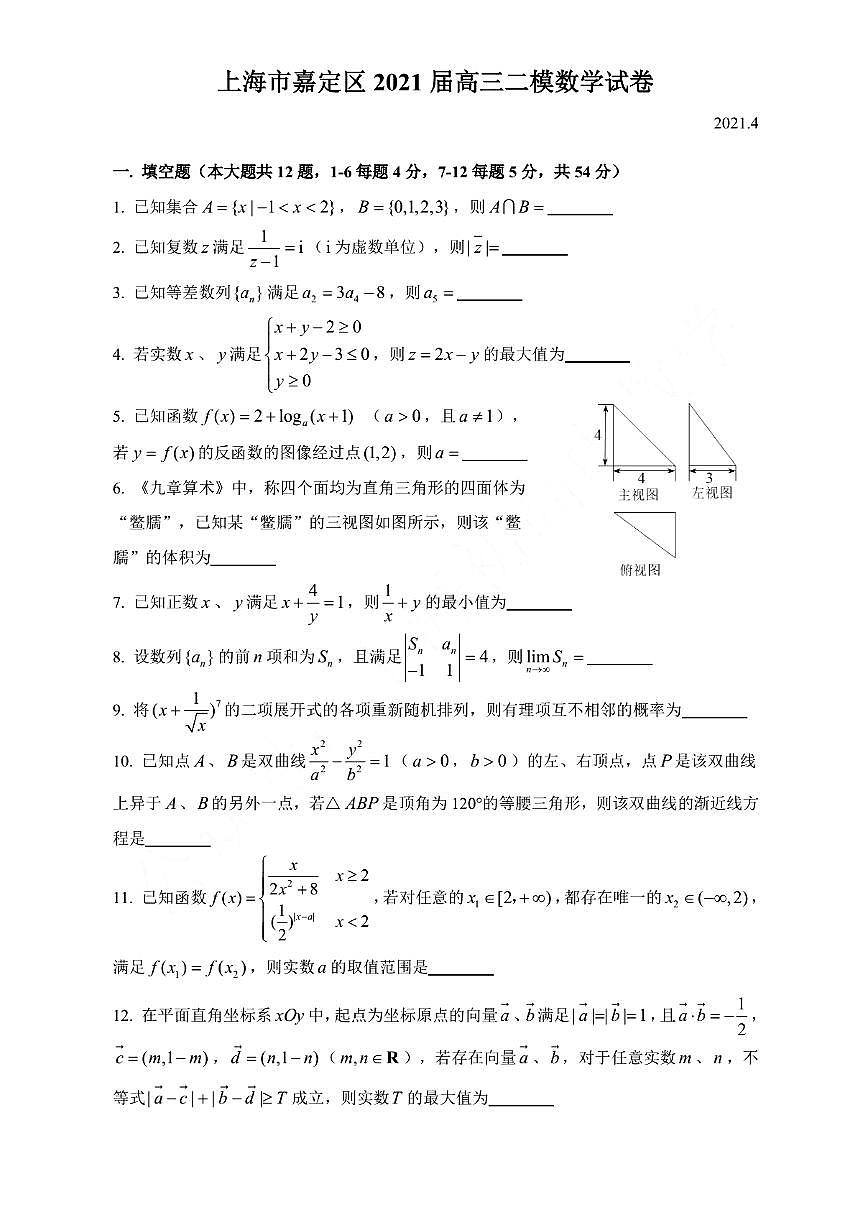 上海市嘉定区 2021 届高三二模数学试卷
2021.4
一. 填空题（本大题共 12 题，1-6 每题 4 分，7-12 每题 5 分，共 54 分）
1. 已知集合 A = {x | −1 < x < 2}，B = {0,1,2,3}，则 A∩B = ________
2. 已知复数 z 满足 \frac{1}{z−1} = i（i 为虚数单位），则 |\bar{z}| = ________
3. 已知等差数列 {a_n} 满足 a_2 = 3a_4 − 8，则 a_5 = ________
4. 若实数 x 、 y 满足 \begin{cases} x + y − 2 ≥ 0 \\ x + 2y − 3 ≤ 0 \\ y ≥ 0 \end{cases}，则 z = 2x − y 的最大值为________
5. 已知函数 f(x) = 2 + log_a(x + 1) （a > 0，且 a ≠ 1），
若 y = f(x) 的反函数的图像经过点 (1,2)，则 a = ________
6. 《九章算术》中，称四个面均为直角三角形的四面体为
“鳖臑”，已知某“鳖臑”的三视图如图所示，则该“鳖
臑”的体积为________
4
4
3
主视图 左视图
俯视图
7. 已知正数 x 、 y 满足 x + \frac{4}{y} = 1，则 \frac{1}{x} + y 的最小值为________
8. 设数列 {a_n} 的前 n 项和为 S_n，且满足 \begin{vmatrix} S_n & a_n \\ −1 & 1 \end{vmatrix} = 4，则 \lim_{n→∞} S_n = ________
9. 将 (x + \frac{1}{\sqrt{x}})^7 的二项展开式的各项重新随机排列，则有理项互不相邻的概率为________
10. 已知点 A 、 B 是双曲线 \frac{x^2}{a^2} − \frac{y^2}{b^2} = 1（a > 0，b > 0）的左、右顶点，点 P 是该双曲线
上异于 A 、 B 的另外一点，若△ ABP 是顶角为 120°的等腰三角形，则该双曲线的渐近线方
程是________
11. 已知函数 f(x) = \begin{cases} \frac{x}{2x^2 + 8} & x ≥ 2 \\ (\frac{1}{2})^{|x−a|} & x < 2 \end{cases}，若对任意的 x_1 ∈ [2,+∞)，都存在唯一的 x_2 ∈ (−∞,2)，
满足 f(x_1) = f(x_2)，则实数 a 的取值范围是________
12. 在平面直角坐标系 xOy 中，起点为坐标原点的向量 \vec{a} 、 \vec{b} 满足 |\vec{a}| = |\vec{b}| = 1，且 \vec{a}·\vec{b} = −\frac{1}{2}，
\vec{c} = (m,1−m)，\vec{d} = (n,1−n)（m,n ∈ R），若存在向量 \vec{a} 、 \vec{b}，对于任意实数 m 、 n，不
等式 |\vec{a} − \vec{c}| + |\vec{b} − \vec{d}| ≥ T 成立，则实数 T 的最大值为________